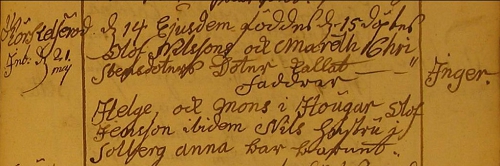 Korsleröd
Int: d. 21.
maj
d 14 Ejusdem foddes d. 15 döptes
Olof Nilssons och Mareth Chri
stensdoters Doter kallat
Inger.
Faddrar
Helge, och gnons i Hougar Olof
Jensson ibidem Nils hustru i
Solberg anna bar barnet.